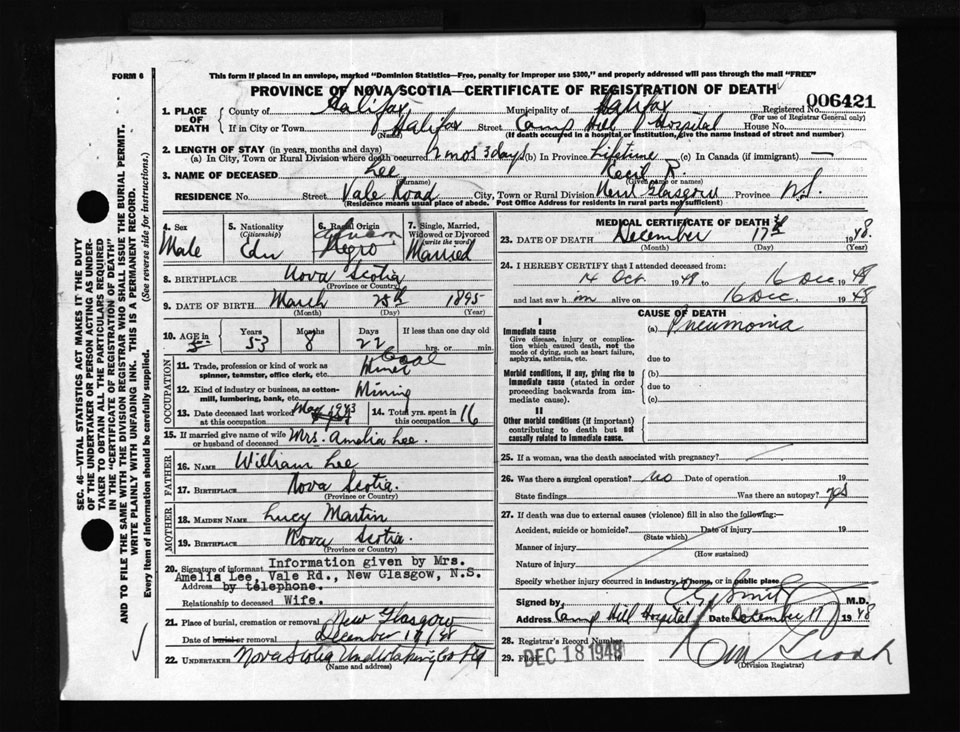 FORM 6
This form if placed in an envelope, marked "Dominion Statistics—Free, penalty for improper use $300," and properly addressed will pass through the mail "FREE"
PROVINCE OF NOVA SCOTIA—CERTIFICATE OF REGISTRATION OF DEATH
1. PLACE OF DEATH
County of Halifax Municipality of Halifax Registered No. 006421
(For use of Registrar General only)
If in City or Town Halifax Street Camp Hill Hospital House No.
(If death occurred in a hospital or institution, give the name instead of street and number)
2. LENGTH OF STAY (in years, months and days)
(a) In City, Town or Rural Division where death occurred 2 mos 3 days (b) In Province Lifetime (c) In Canada (if immigrant) —
3. NAME OF DECEASED Lee Cecil R.
(Surname) (Given name or names)
RESIDENCE No. Street Vale Road City, Town or Rural Division New Glasgow Province N.S.
(Residence means usual place of abode. Post Office Address for residents in rural parts not sufficient)
4. Sex Male
5. Nationality (Citizenship) Cdn
6. Racial Origin Negro
7. Single, Married, Widowed or Divorced (write the word) Married
8. BIRTHPLACE Nova Scotia
(Province or Country)
9. DATE OF BIRTH March 25th 1895
(Month) (Day) (Year)
10. AGE in Years 53 Months 8 Days 22 If less than one day old hrs. or min.
OCCUPATION
11. Trade, profession or kind of work as spinner, teamster, office clerk, etc. Coal Miner
12. Kind of industry or business, as cotton-mill, lumbering, bank, etc. Mining
13. Date deceased last worked at this occupation May 1943
14. Total yrs. spent in 16
15. If married give name of wife or husband of deceased Mrs. Amelia Lee.
FATHER
16. NAME William Lee
17. BIRTHPLACE Nova Scotia.
(Province or Country)
MOTHER
18. MAIDEN NAME Lucy Martin
19. BIRTHPLACE Nova Scotia.
(Province or Country)
20. Signature of informant Information given by Mrs.
Amelia Lee, Vale Rd., New Glasgow, N.S.
Address by telephone.
Relationship to deceased Wife.
21. Place of burial, cremation or removal New Glasgow
Date of burial or removal December 17/48
22. UNDERTAKER Nova Scotia Undertaking Co Ltd
(Name and address)
MEDICAL CERTIFICATE OF DEATH
23. DATE OF DEATH December 17th 1948.
(Month) (Day) (Year)
24. I HEREBY CERTIFY that I attended deceased from:
14 Oct. 1948 to 16 Dec. 1948
and last saw him alive on 16 Dec. 1948
CAUSE OF DEATH
I
Immediate cause (a) Pneumonia
Give disease, injury or complication which caused death, not the mode of dying, such as heart failure, asphyxia, asthenia, etc.
due to
Morbid conditions, if any, giving rise to immediate cause (stated in order proceeding backwards from immediate cause).
(b)
due to
(c)
II
Other morbid conditions (if important) contributing to death but not causally related to immediate cause.
25. If a woman, was the death associated with pregnancy?
26. Was there a surgical operation? no Date of operation 19
State findings Was there an autopsy? yes
27. If death was due to external causes (violence) fill in also the following:—
Accident, suicide or homicide? Date of injury 19
(State which)
Manner of injury
(How sustained)
Nature of injury
Specify whether injury occurred in industry, in home, or in public place
Signed by M.D.
Address Camp Hill Hospital Date December 17 1948
28. Registrar's Record Number
29. Filed DEC 18 1948
(Division Registrar)
SEC. 46—VITAL STATISTICS ACT MAKES IT THE DUTY
OF THE UNDERTAKER OR PERSON ACTING AS UNDER-
TAKER TO OBTAIN ALL THE PARTICULARS REQUIRED
IN THE "CERTIFICATE OF REGISTRATION OF DEATH"
AND TO FILE THE SAME WITH THE DIVISION REGISTRAR WHO SHALL ISSUE THE BURIAL PERMIT.
WRITE PLAINLY WITH UNFADING INK. THIS IS A PERMANENT RECORD.
Every item of information should be carefully supplied. (See reverse side for instructions.)